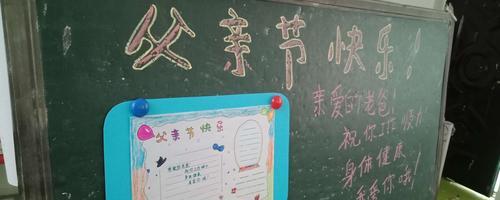 父亲节快乐！
亲爱的老爸！
祝你工作快乐
身体健康
我爱你哦！
父亲节快乐